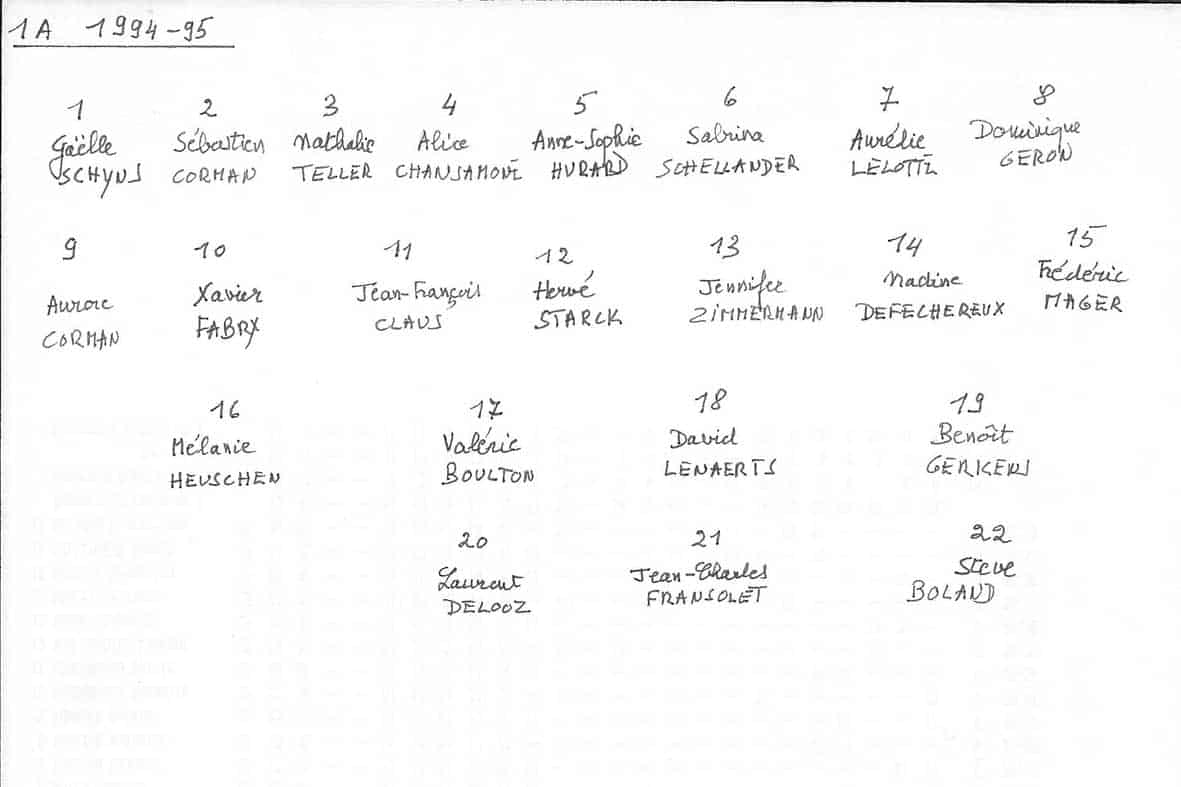 1A 1994-95
1 2 3 4 5 6 7 8
Gaëlle Sébastien Nathalie Alice Anne-Sophie Sabrina Aurélie Dominique
SCHYNS CORMAN TELLER HURARD SCHELLANDER LELOTTE GERON
9 10 11 12 13 14 15
Aurore Xavier Jean-François Hervé Jennifer Nadine Frédéric
CORMAN FABRY CLAUS STARCK ZIMMERMANN DEFECHEREUX MAGER
16 17 18 19
Mélanie Valérie David Benoît
HEUSCHEN BOULTON LENAERTS GERKENS
20 21 22
Laurent Jean-Charles Steve
DELOOZ FRANSOLET BOLAND